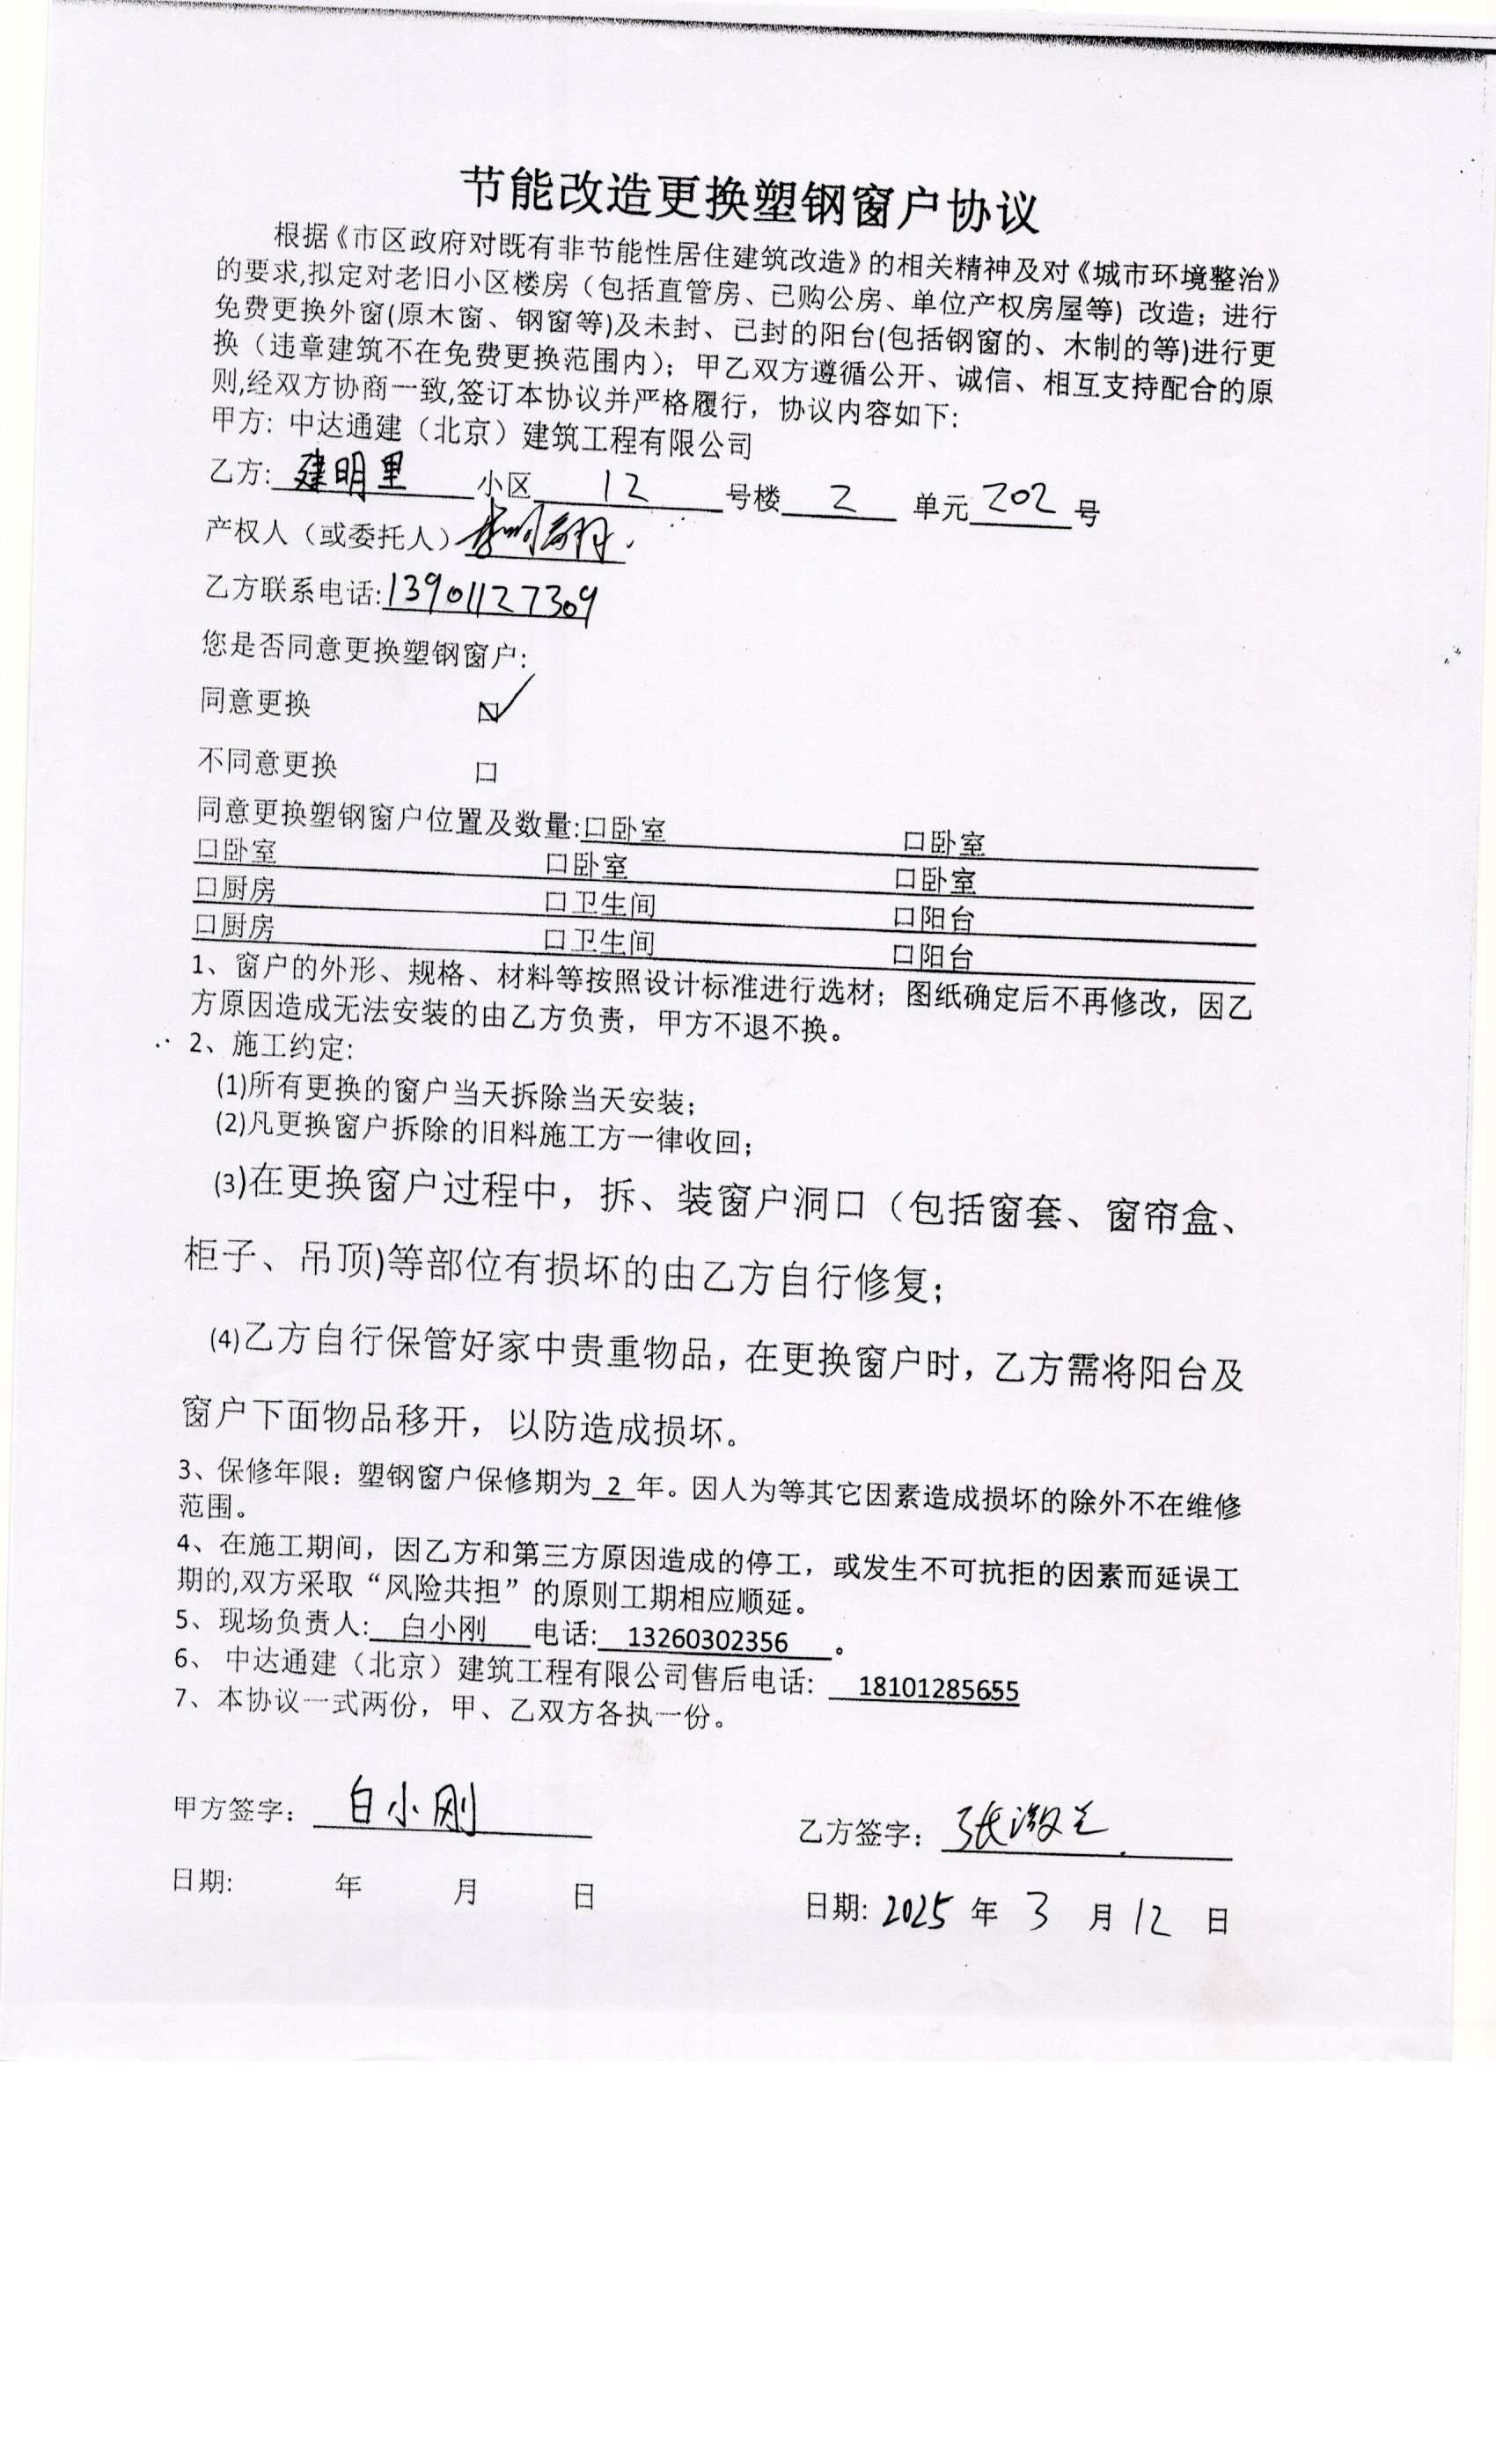 节能改造更换塑钢窗户协议
根据《市区政府对既有非节能性居住建筑改造》的相关精神及对《城市环境整治》
的要求,拟定对老旧小区楼房（包括直管房、已购公房、单位产权房屋等）改造；进行
免费更换外窗(原木窗、钢窗等)及未封、已封的阳台(包括钢窗的、木制的等)进行更
换（违章建筑不在免费更换范围内）；甲乙双方遵循公开、诚信、相互支持配合的原
则,经双方协商一致,签订本协议并严格履行，协议内容如下:
甲方: 中达通建（北京）建筑工程有限公司
乙方: 建明里 小区 12 号楼 2 单元 202 号
产权人（或委托人）
乙方联系电话:13901127309
您是否同意更换塑钢窗户:
同意更换 ☑
不同意更换 口
同意更换塑钢窗户位置及数量:口卧室 口卧室
口卧室 口卧室 口卧室
口厨房 口卫生间 口阳台
口厨房 口卫生间 口阳台
1、窗户的外形、规格、材料等按照设计标准进行选材；图纸确定后不再修改，因乙
方原因造成无法安装的由乙方负责，甲方不退不换。
2、施工约定:
(1)所有更换的窗户当天拆除当天安装;
(2)凡更换窗户拆除的旧料施工方一律收回;
(3)在更换窗户过程中，拆、装窗户洞口（包括窗套、窗帘盒、
柜子、吊顶)等部位有损坏的由乙方自行修复;
(4)乙方自行保管好家中贵重物品，在更换窗户时，乙方需将阳台及
窗户下面物品移开，以防造成损坏。
3、保修年限：塑钢窗户保修期为 2 年。因人为等其它因素造成损坏的除外不在维修
范围。
4、在施工期间，因乙方和第三方原因造成的停工，或发生不可抗拒的因素而延误工
期的,双方采取“风险共担”的原则工期相应顺延。
5、现场负责人: 白小刚 电话: 13260302356 。
6、中达通建（北京）建筑工程有限公司售后电话: 18101285655
7、本协议一式两份，甲、乙双方各执一份。
甲方签字: 白小刚
乙方签字: 张
日期: 年 月 日
日期: 2025 年 3 月 12 日